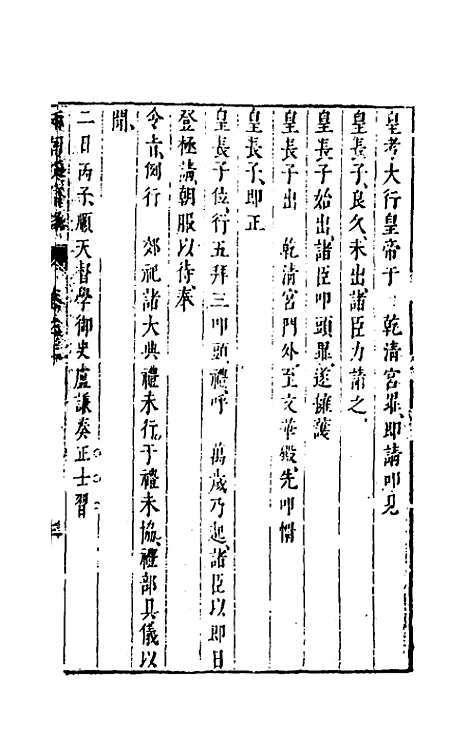 皇考大行皇帝于 乾清宮畢、即請叩見
皇長子、良久、未出、諸臣力請之、
皇長子始出、諸臣叩頭畢、遂擁護
皇長子出 乾清宮門外、至文華殿、先叩慴
皇長子、即正
皇長子位、行五拜三叩頭禮、呼 萬歲乃起、諸臣以即日
登極、請朝服以待、奉
令旨、例行 郊祀諸大典禮未行、于禮未協、禮部具儀以
聞、
二日丙子、順天督學御史盧謙奏正士習